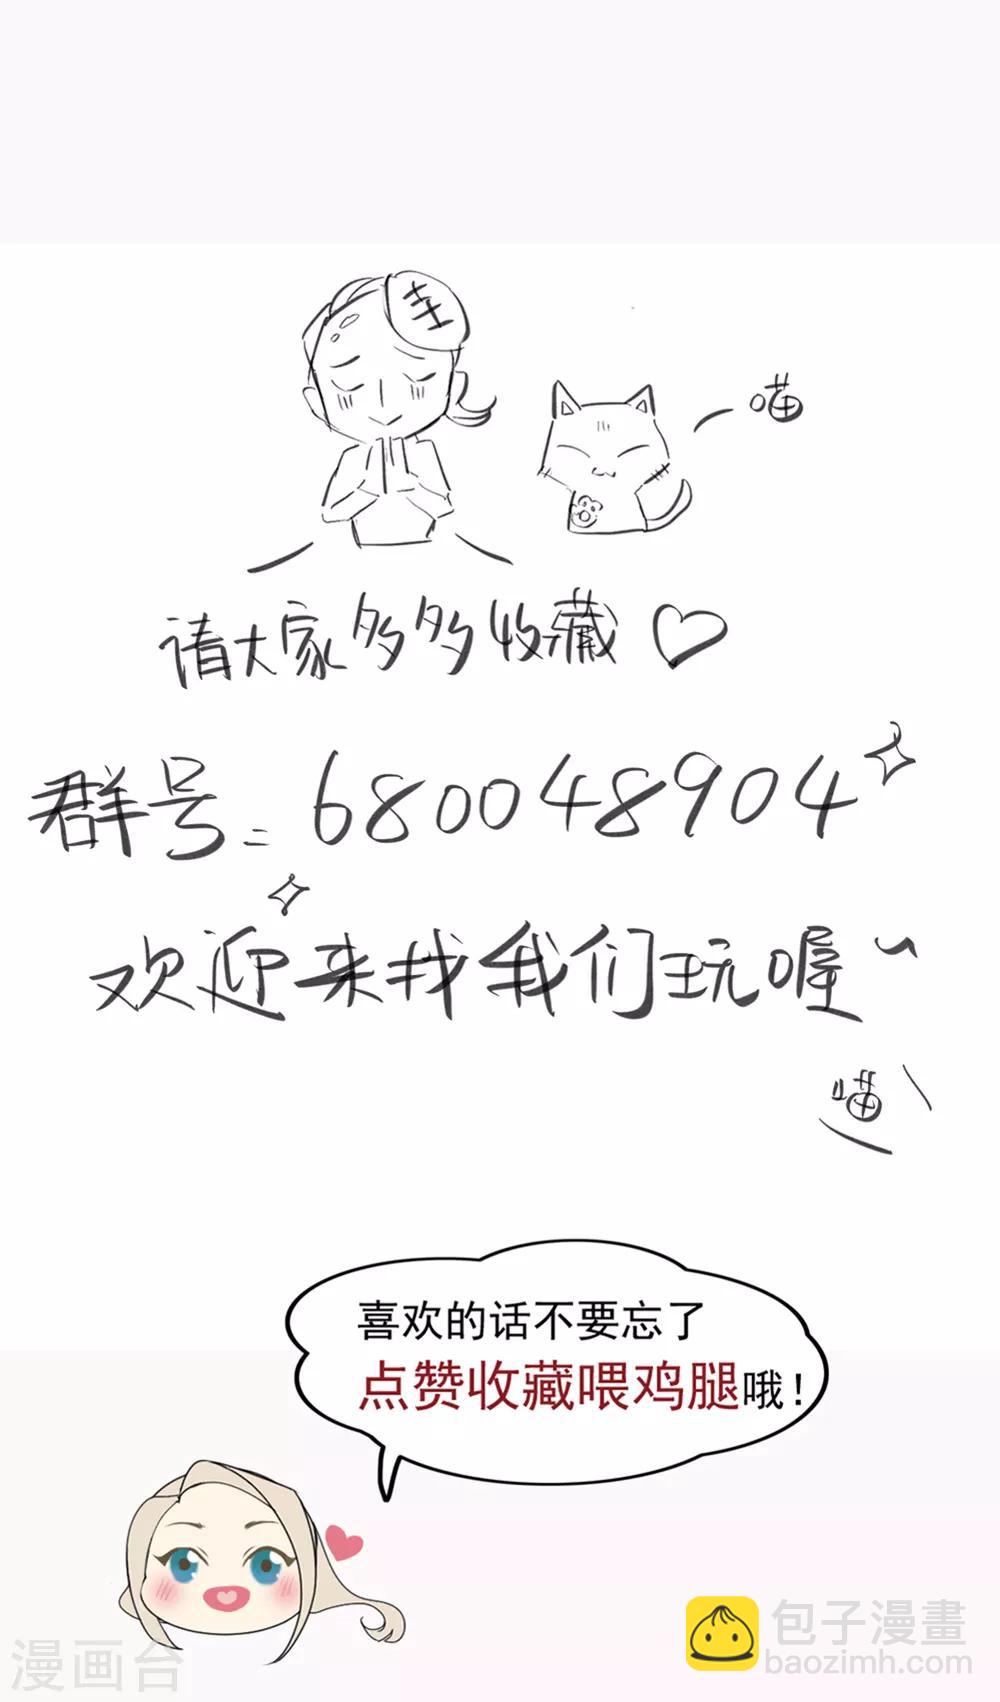 圭
喵
请大家多多收藏♡
群号=680048904
欢迎来找我们玩喔~
喵
喜欢的话不要忘了
点赞收藏喂鸡腿哦！
漫画台
包子漫畫
baozimh.com